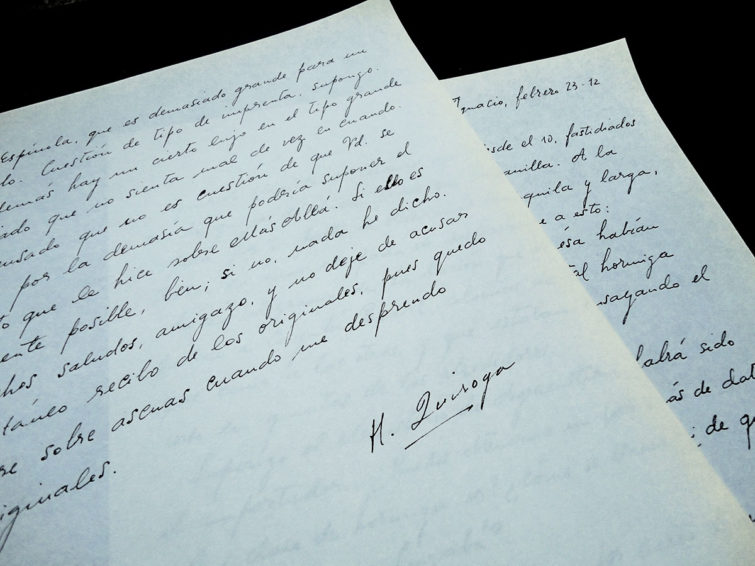 Espínola, que es demasiado grande para un
lo. Cuestión de tipo de imprenta, supongo.
demás hay un cierto lujo en el tipo grande
iado que no sienta mal de vez en cuando.
usado que no es cuestión de que Vd. se
por la demasía que podría suponer el
to que le hice sobre Más Allá. Si ello es
ente posible, bien; si no, nada he dicho.
chos saludos, amigazo, y no deje de acusar
táneo recibo de los originales, pues quedo
re sobre ascuas cuando me desprendo
iginales.
H. Quiroga
Ignacio, febrero 23-12
esde el 10, fastidiados
anilla. A la
quila y larga,
e a esto:
ósa habían
tal hormiga
nsayando el
abrá sido
ás de dat
de q